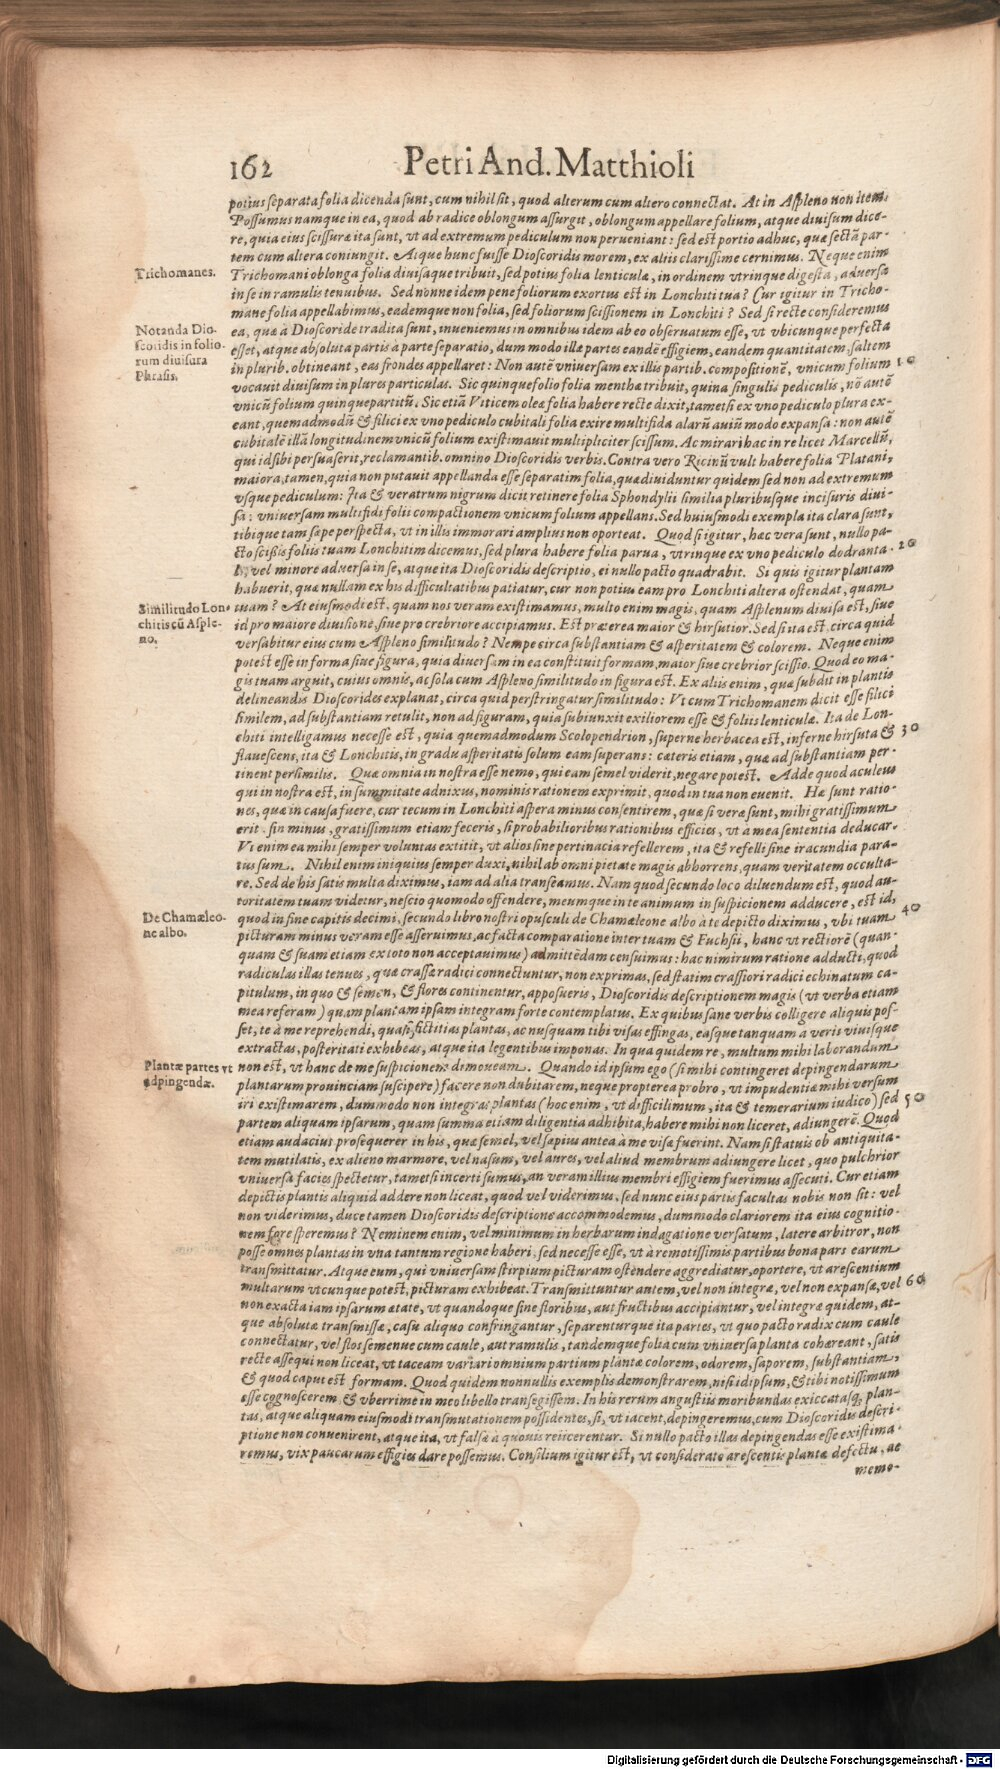 162 Petri And. Matthioli
potius separata folia dicenda sunt, cum nihil sit, quod alterum cum altero connectat. At in Aspleno non item.
Possumus namque in ea, quod ab radice oblongum assurgit, oblongum appellare folium, atque diuisum dice-
re, quia eius scissuræ ita sunt, vt ad extremum pediculum non perueniant: sed est portio adhuc, quæ sectã par-
tem cum altera coniungit. Atque hunc fuisse Dioscoridus morem, ex aliis clarissime cernimus. Neque enim
Trichomanes.
Trichomani oblonga folia diuisaque tribuit, sed potius folia lenticulæ, in ordinem vtrinque digesta, aduersa
inse in ramulis tenuibus. Sed nonne idem pene foliorum exortus est in Lonchiti tua? Cur igitur in Tricho-
mane folia appellabimus, eademque non folia, sed foliorum scissionem in Lonchiti? Sed si recte consideremus
Notanda Dio-
scoridis in folio-
rum diuisura
Phrasis.
ea, quæ à Dioscoride tradita sunt, inueniemus in omnibus idem ab eo obseruatum esse, vt vbicunque perfecta
esset, atque absoluta partis à parte separatio, dum modo illæ partes eandẽ effigiem, eandem quantitatem saltem
in plurib. obtineant, eas frondes appellaret: Non autẽ vniuersam ex illis partib. compositionẽ, vnicum folium 10
vocauit diuisum in plures particulas. Sic quinquefolio folia menthæ tribuit, quina singulis pediculis, nõ autẽ
vnicũ folium quinquepartitũ. Sic etiã Viticem oleæ folia habere recte dixit, tametsi ex vno pediculo plura ex-
eant, quemadmodũ & filici ex vno pediculo cubitali folia exire multifida alarũ auiũ modo expansa: non autẽ
cubitalẽ illã longitudinem vnicũ folium existimauit multipliciter scissum. Ac mirari hac in re licet Marcellũ,
qui id sibi persuaserit, reclamantib. omnino Dioscoridis verbis. Contra vero Ricinũ vult habere folia Platani,
maiora, tamen, quia non putauit appellanda esse separatim folia, quæ diuiduntur quidem sed non ad extremum
vsque pediculum: Ita & veratrum nigrum dicit retinere folia Sphondylii similia pluribusque incisuris diui-
sa: vniuersam multifidi folii compactionem vnicum folium appellans. Sed huiusmodi exempla ita clara sunt,
tibique tam sæpe perspecta, vt in illis immorari amplius non oporteat. Quod si igitur, hæc vera sunt, nullo pa-
cto scissis foliis tuam Lonchitim dicemus, sed plura habere folia parua, vtrinque ex vno pediculo dodranta- 20
li, vel minore aduersa in se, atque ita Dioscoridis descriptio, ei nullo pacto quadrabit. Si quis igitur plantam
habuerit, quæ nullam ex his difficultatibus patiatur, cur non potius eam pro Lonchiti altera ostendat, quam
Similitudo Lon-
chitis cũ Asple-
no.
tuam? At eiusmodi est, quam nos veram existimamus, multo enim magis, quam Asplenum diuisa est, siue
id pro maiore diuisione, siue pro crebriore accipiamus. Est præterea maior & hirsutior. Sed si ita est, circa quid
versabitur eius cum Aspleno similitudo? Nempe circa substantiam & asperitatem & colorem. Neque enim
potest esse in forma siue figura, quia diuersam in ea constituit formam, maior siue crebrior scissio. Quod eo ma-
gis tuam arguit, cuius omnis, ac sola cum Aspleno similitudo in figura est. Ex aliis enim, quæ subdit in plantis
delineandis Dioscorides explanat, circa quid perstringatur similitudo: Vt cum Trichomanem dicit esse filici
similem, ad substantiam retulit, non ad figuram, quia subiunxit exiliorem esse & foliis lenticulæ. Ita de Lon-
chiti intelligamus necesse est, quia quemadmodum Scolopendrion, superne herbacea est, inferne hirsuta & 30
flauescens, ita & Lonchitis, in gradu asperitatis solum eam superans: cæteris etiam, quæ ad substantiam per-
tinent persimilis. Quæ omnia in nostra esse nemo, qui eam semel viderit, negare potest. Adde quod aculeus
qui in nostra est, in summitate adnixus, nominis rationem exprimit, quod in tua non euenit. Hæ sunt ratio-
nes, quæ in causa fuere, cur tecum in Lonchiti aspera minus consentirem, quæ si veræ sunt, mihi gratissimum
erit. sin minus, gratissimum etiam feceris, si probabilioribus rationibus efficies, vt à mea sententia deducar.
Vt enim ea mihi semper voluntas extitit, vt alios sine pertinacia refellerem, ita & refelli sine iracundia para-
tus sum. Nihil enim iniquius semper duxi, nihil ab omni pietate magis abhorrens, quam veritatem occulta-
re. Sed de his satis multa diximus, iam ad alia transeamus. Nam quod secundo loco diluendum est, quod au-
toritatem tuam videtur, nescio quomodo offendere, meumque in te animum in suspicionem adducere, est id,
De Chamæleo-
ne albo.
quod in fine capitis decimi, secundo libro nostri opusculi de Chamæleone albo à te depicto diximus, vbi tuam 40
picturam minus veram esse asseruimus, ac facta comparatione inter tuam & Fuchsii, hanc vt rectiorẽ (quan-
quam & suam etiam ex toto non acceptauimus) admittẽdam censuimus: hac nimirum ratione adducti, quod
radiculas illas tenues, quæ crassæ radici connectuntur, non exprimas, sed statim crassiori radici echinatum ca-
pitulum, in quo & semen, & flores continentur, apposueris, Dioscoridis descriptionem magis (vt verba etiam
mea referam) quam plantam ipsam integram forte contemplatus. Ex quibus sane verbis colligere aliquis pos-
set, te à me reprehendi, quasi fictitias plantas, ac nusquam tibi visas effingas, easque tanquam a veris viuisque
extractas, posteritati exhibeas, atque ita legentibus imponas. In qua quidem re, multum mihi laborandum
Plantæ partes vt
adpingendæ.
non est, vt hanc de me suspicionem dimoueam. Quando id ipsum ego (si mihi contingeret depingendarum
plantarum prouinciam suscipere) facere non dubitarem, neque propterea probro, vt impudentiæ mihi versum
iri existimarem, dummodo non integras plantas (hoc enim, vt difficilimum, ita & temerarium iudico) sed 50
partem aliquam ipsarum, quam summa etiam diligentia adhibita, habere mihi non liceret, adiungerẽ. Quod
etiam audacius prosequerer in his, quæ semel, vel sæpius antea à me visæ fuerint. Nam si statuis ob antiquita-
tem mutilatis, ex alieno marmore, vel nasum, vel aures, vel aliud membrum adiungere licet, quo pulchrior
vniuersa facies spectetur, tametsi incerti sumus, an veram illius membri effigiem fuerimus assecuti. Cur etiam
depictis plantis aliquid addere non liceat, quod vel viderimus, sed nunc eius partis facultas nobis non sit: vel
non viderimus, duce tamen Dioscoridis descriptione accommodemus, dummodo clariorem ita eius cognitio-
nem fore speremus? Neminem enim, vel minimum in herbarum indagatione versatum, latere arbitror, non
posse omnes plantas in vna tantum regione haberi, sed necesse esse, vt à remotissimis partibus bona pars earum
transmittatur. Atque eum, qui vniuersam stirpium picturam ostendere aggrediatur, oportere, vt arescentium
multarum vtcunque potest, picturam exhibeat. Transmittuntur autem, vel non integræ, vel non expansæ, vel 60
non exacta iam ipsarum ætate, vt quandoque sine floribus, aut fructibus accipiantur, vel integræ quidem, at-
que absolutæ transmissæ, casu aliquo confringantur, separenturque ita partes, vt quo pacto radix cum caule
connectatur, vel flos semenue cum caule, aut ramulis, tandemque folia cum vniuersa planta cohæreant, satis
recte assequi non liceat, vt taceam variari omnium partium plantæ colorem, odorem, saporem, substantiam,
& quod caput est formam. Quod quidem nonnullis exemplis demonstrarem, nisi id ipsum, & tibi notissimum
esse cognoscerem, & vberrime in meo libello transegissem. In his rerum angustiis moribundas exiccatasq; plan-
tas, atque aliquam eiusmodi transmutationem possidentes, si, vt iacent, depingeremus, cum Dioscoridis descri-
ptione non conuenirent, atque ita, vt falsæ à quouis reiicerentur. Si nullo pacto illas depingendas esse existima-
remus, vix paucarum effigies dare possemus. Consilium igitur est, vt considerato arescentis plantæ defectu, ac
memo-
Digitalisierung gefördert durch die Deutsche Forschungsgemeinschaft - DFG